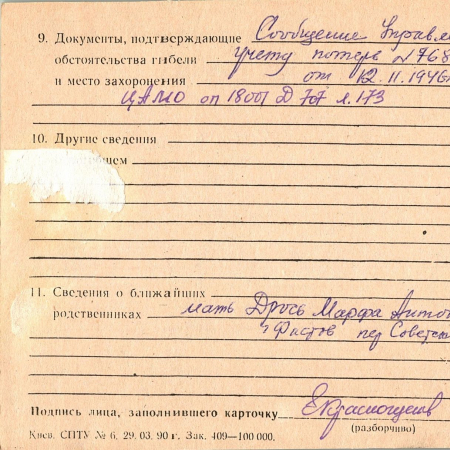 9. Документы, подтверждающие Сообщение Управл
обстоятельства гибели учету потерь №768
и место захоронения от 12.11.1946
ЦАМО оп 18001 Д 707 л. 173
10. Другие сведения
11. Сведения о ближайших
родственниках мать Дрось Марфа Антон
г Фастов пер Советск
Подпись лица, заполнившего карточку
(разборчиво)
Киев. СПТУ № 6. 29. 03. 90 г. Зак. 409—100 000.